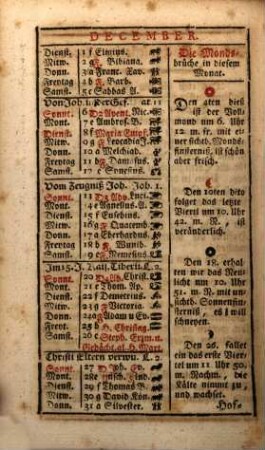 DECEMBER.
Dienst. 1 f Eligius.
Mitw. 2 g F. Bibiana.
Donn. 3 a Franc. Xav.
Freytag 4 b F. Barb.
Samst. 5 c Sabbas A.
Sonnt. 6 d Advent. Nic.
Mont. 7 e Ambros. B.
Dienst. 8 f Mariä Empf.
Mitw. 9 g F. Leocadia J.
Donn. 10 a Melchiad.
Freytag 11 b F. Damasus.
Samst. 12 c Synesius.
Vom Zeugniß Joh. Joh. 1.
Sonnt. 13 Luci.
Mont. 14 e Agnellus.
Dienst. 15 f Eusebius.
Mitw. 16 g F. Quatemb
Donn. 17 a Eberhardus.
Freytag 18 b F. Wunib.
Samst. 19 c F. Nemesius.
Im 15. J. Kais. Tiberii. L. 3
Sonnt. 20 Christ.
Mont. 21 e Thom. Ap.
Dienst. 22 f Demetrius.
Mitw. 23 g F. Victoria.
Donn. 24 a F. Adam u Ev.
Freyt. 25 b H. Christag.
Samst. 26 c Steph. Erzm. u.
Christi Eltern verwu. L. 2
Sonnt. 27 Joh. Ev.
Mont. 28 e Unsch. Kind.
Dienst. 29 f Thomas B.
Mitw. 30 g David Kön.
Donn. 31 a Silvester.
Die Monds-
brüche in diesem
Monat.
Den 4ten dieß
ist der Voll-
mond um 6. Uhr
12. m. fr. mit ei-
ner sichtb. Monds-
finsterniß, ist schön
aber frisch.
Den 10ten dito
folget das letzte
Viertl um 10. Uhr
42. m. N., ist
veränderlich.
Den 18. erhal-
ten wir das Neu-
licht um 10. Uhr
51. m. N. mit un-
sichtb. Sonnenfin-
sterniß, es will
schneyen.
Den 26. fallet
ein das erste Vier-
tel um 11 Uhr 50.
m. Nachm., die
Kälte nimmt zu,
und wachset.
Hof-